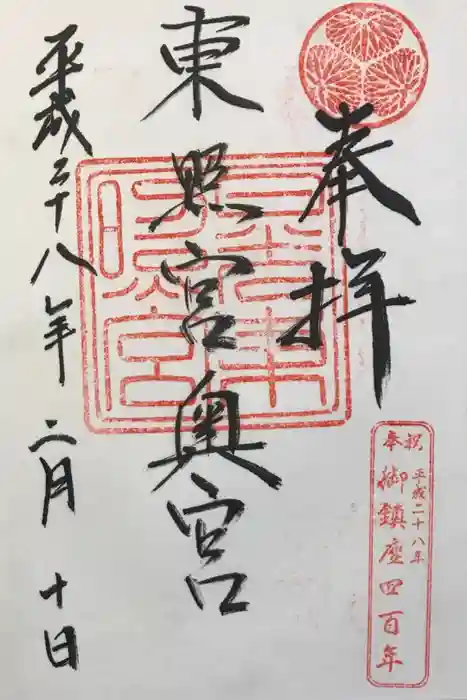 奉拝
奉祝
平成二十八年
御鎮座四百年
東照宮奥宮
平成二十八年
二月
十日